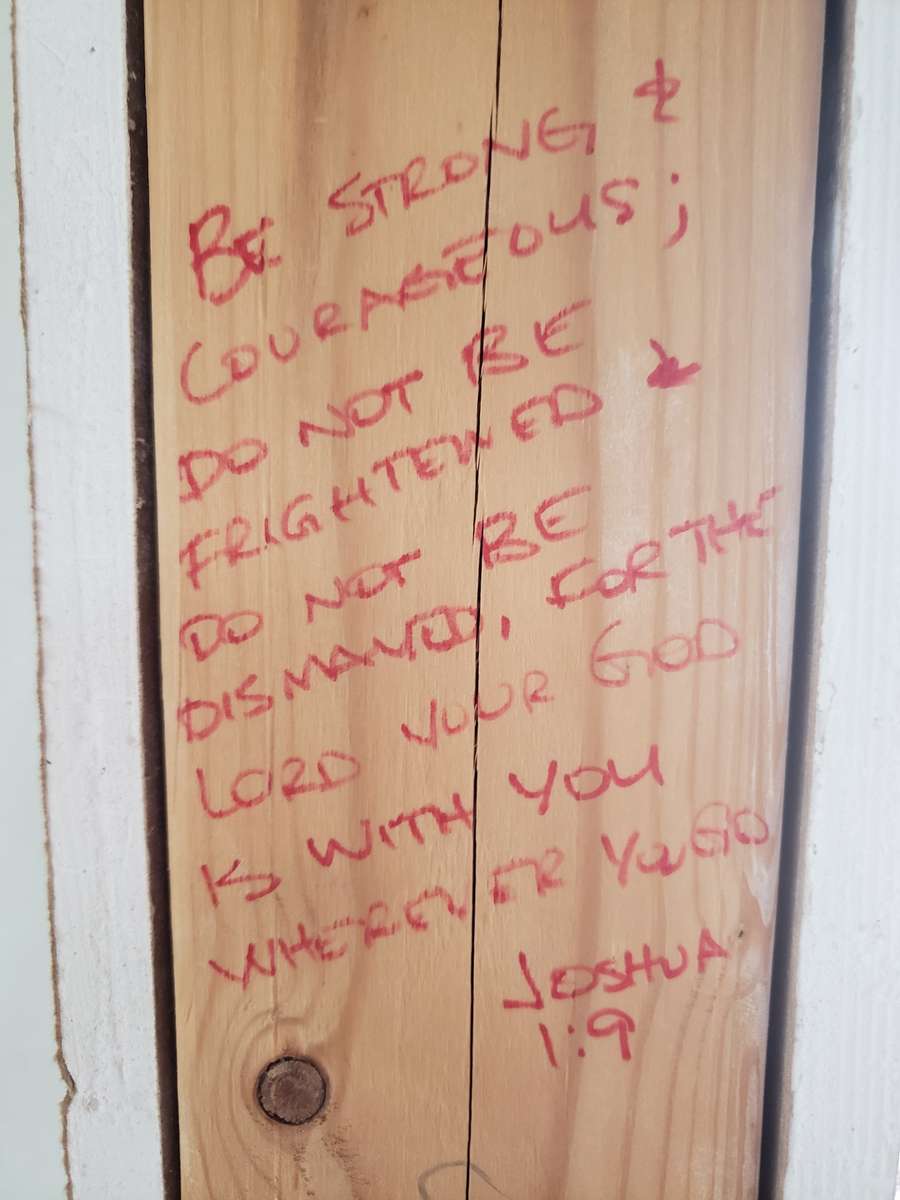 BE STRONG &
COURAGEOUS;
DO NOT BE
FRIGHTENED &
DO NOT BE
DISMAYED, FOR THE
LORD YOUR GOD
IS WITH YOU
WHEREVER YOU GO
JOSHUA
1:9